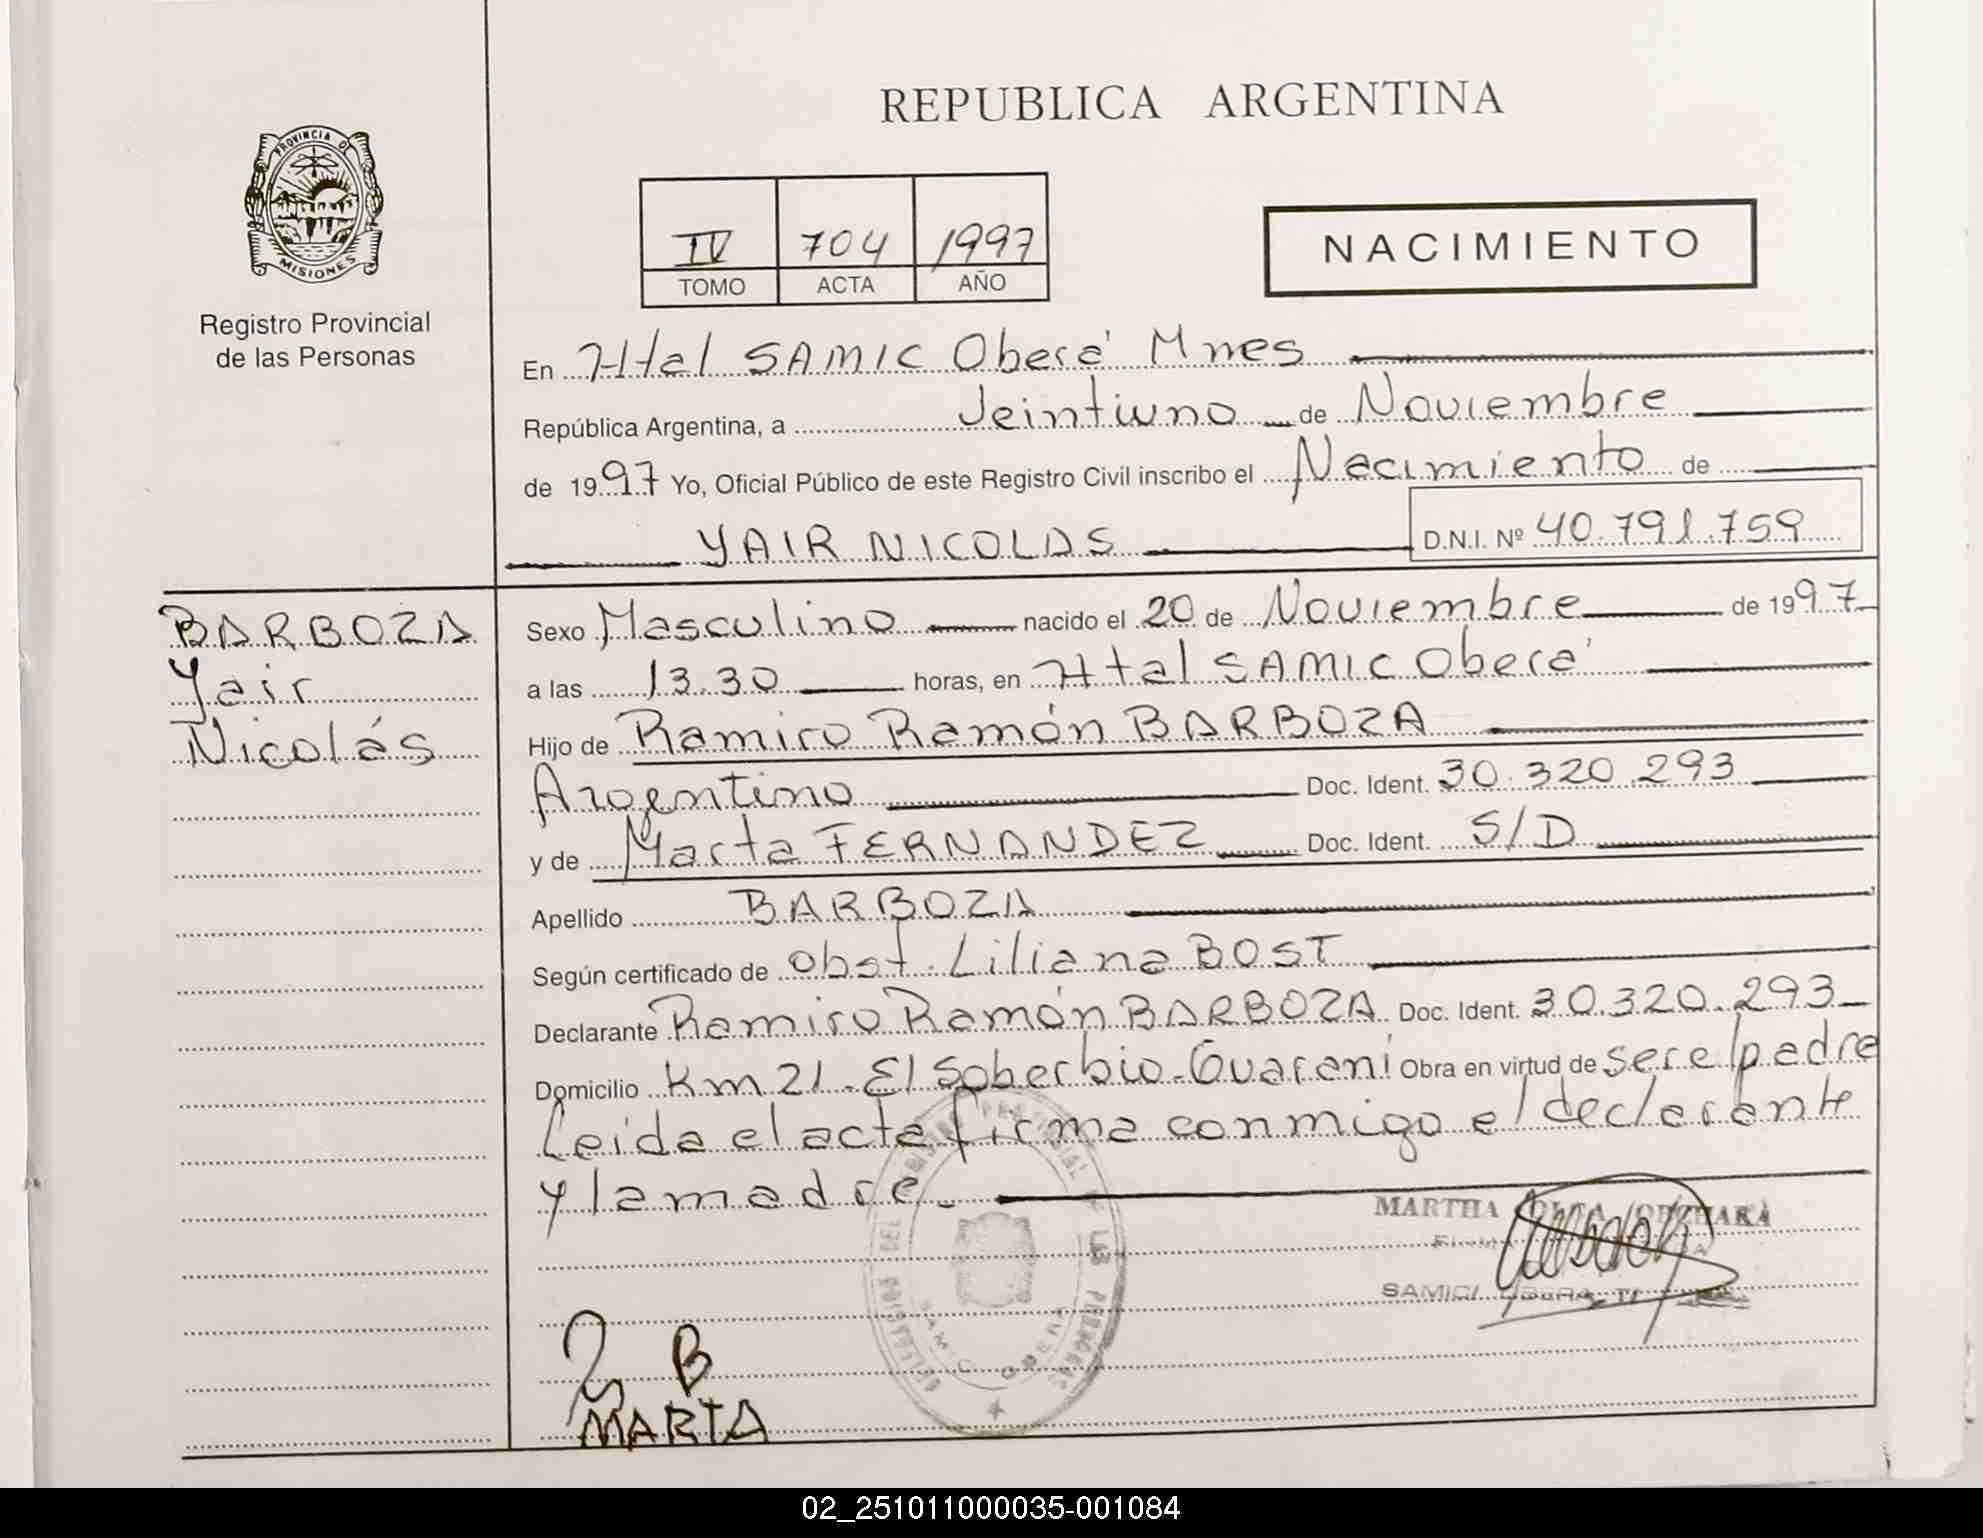 REPUBLICA ARGENTINA
PROVINCIA DE
MISIONES
Registro Provincial
de las Personas
IV 704 1997
TOMO ACTA AÑO
NACIMIENTO
En Htal SAMIC Oberá Mnes
República Argentina, a Veintiuno de Noviembre
de 1997 Yo, Oficial Público de este Registro Civil inscribo el Nacimiento de
YAIR NICOLAS D.N.I. Nº 40.791.759
BARBOZA
Yair
Nicolás
Sexo Masculino nacido el 20 de Noviembre de 1997
a las 13.30 horas, en Htal SAMIC Oberá
Hijo de Ramiro Ramón BARBOZA
Argentino Doc. Ident. 30.320.293
y de Marta FERNANDEZ Doc. Ident. S/D
Apellido BARBOZA
Según certificado de obst. Liliana BOST
Declarante Ramiro Ramón BARBOZA Doc. Ident. 30.320.293
Domicilio Km 21 - El Soberbio - Guaraní Obra en virtud de ser el padre
Leida el acta firma conmigo el declarante
y la madre.
MARTHA
SAMIC
B
MARTA
02_251011000035-001084